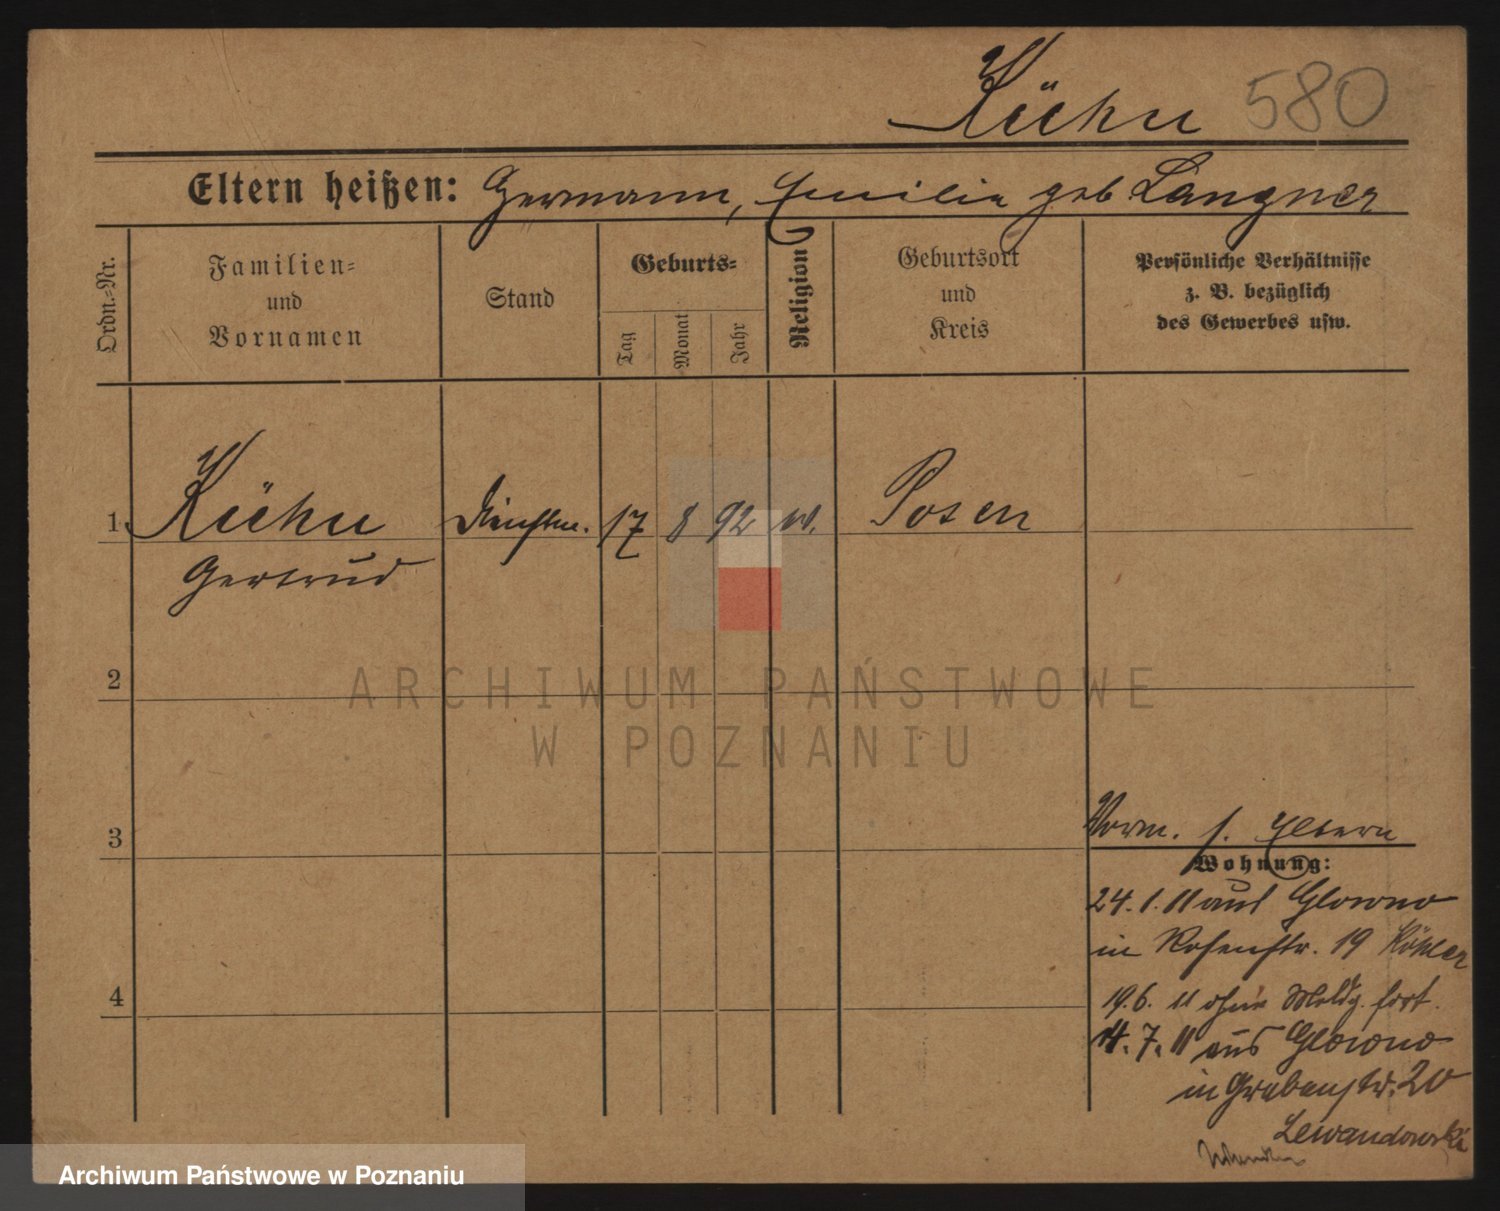 Kühn 580
Eltern heißen: Hermann, Emilie geb Langner
Ordn.-Nr.
Familien-
und
Vornamen
Stand
Geburts-
Tag
Monat
Jahr
Religion
Geburtsort
und
Kreis
Persönliche Verhältnisse
z. B. bezüglich
des Gewerbes usw.
1 Kühn Dienstm. 17 8 92 Posen
Gertrud
2
ARCHIWUM PAŃSTWOWE
W POZNANIU
3
Vorm. s. Eltern
Wohnung:
24. 1. 11 aus Glowno
in Rosenstr. 19 Köhler
4
19. 6. 11 ohne Meldg. fort.
14. 7. 11 aus Glowno
in Grabenstr. 20
Lewandowski
Archiwum Państwowe w Poznaniu